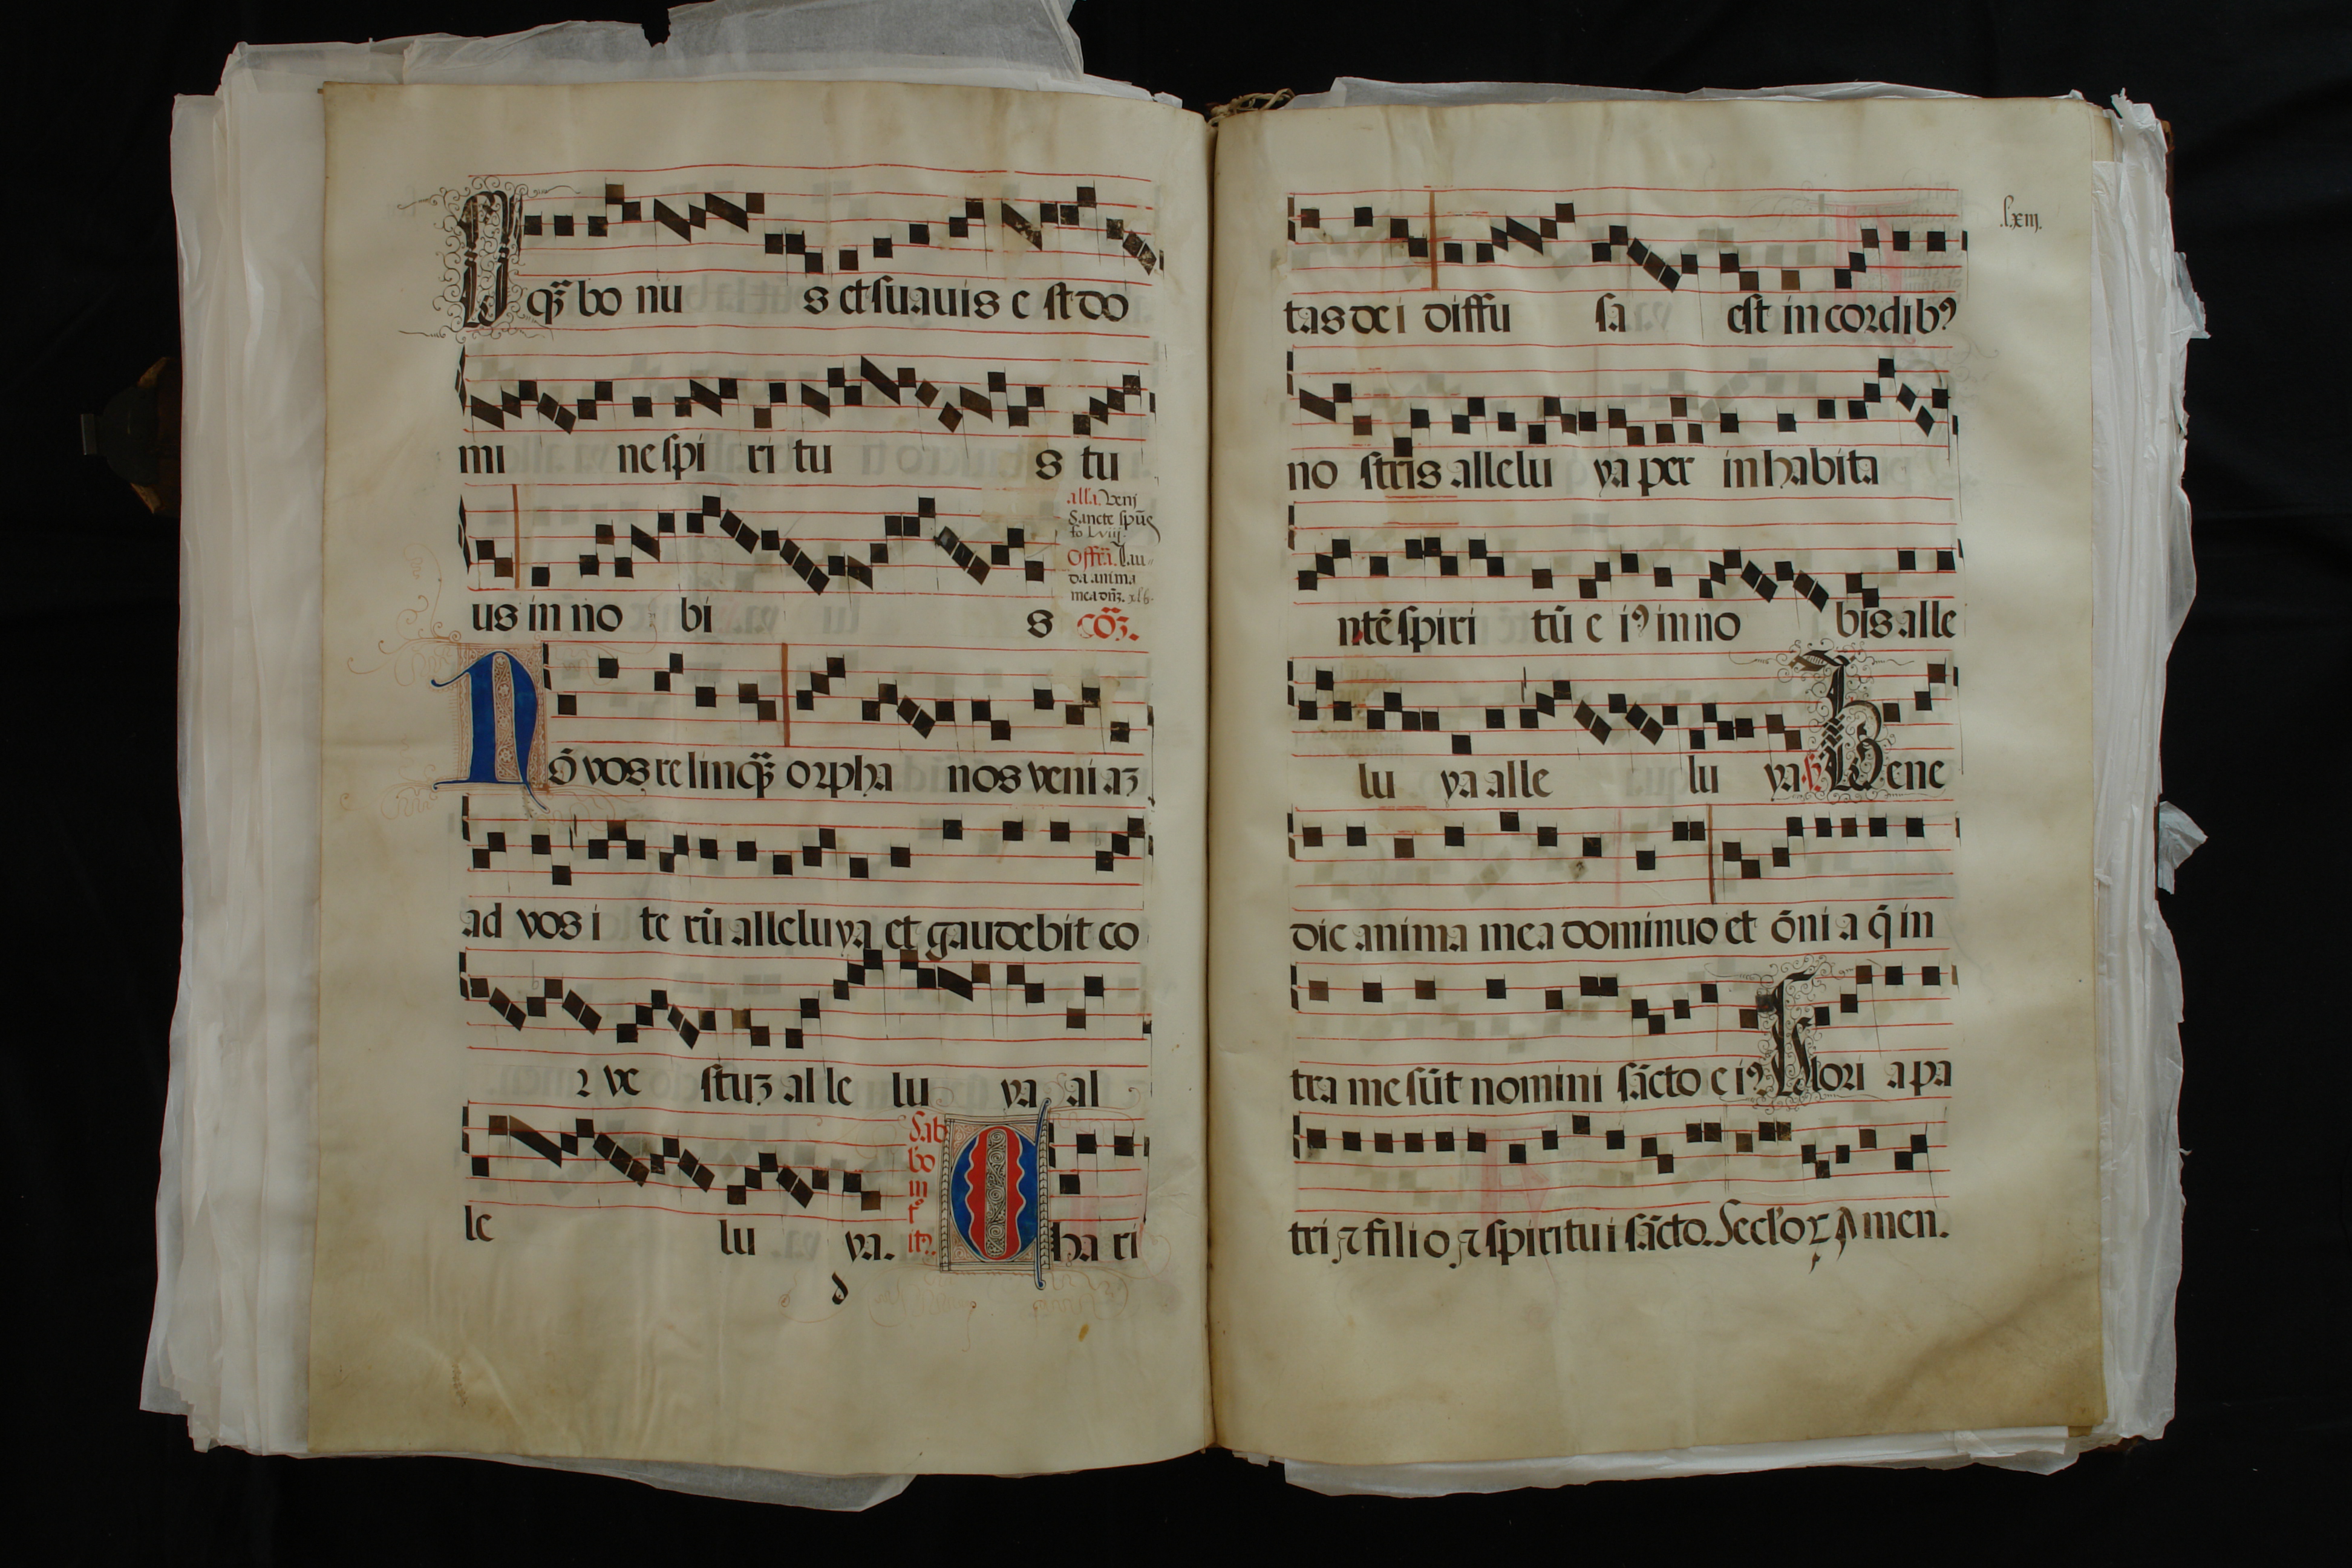 O q̄ȝ bo nu s et suauis e st do
mi ne spi ri tu s tu
us in no bi s
alla. Veni
Sancte spūs
fo lviij.
Offrā. Lau-
da anima
mea dn̄ȝ. xlv.
cōȝ.
Nō vos relinq̄ȝ orpha nos veni aȝ
ad vos i te rū alleluya et gaudebit co
r ve stuȝ al le lu ya al
le lu ya.
Sab
bo
in
itȝ.
Cha ri
lxiij.
tas de i diffu sa est in cordib9
no stris allelu ya per inhabita
ntē spiri tū e i9 in no bis alle
lu ya alle lu ya. Bene
dic anima mea dominuo et ōni a q̄ in
tra me sūt nomini sācto e i9 Glori a pa
tri ⁊ filio ⁊ spiritui sācto. Seclōꝝ Amen.